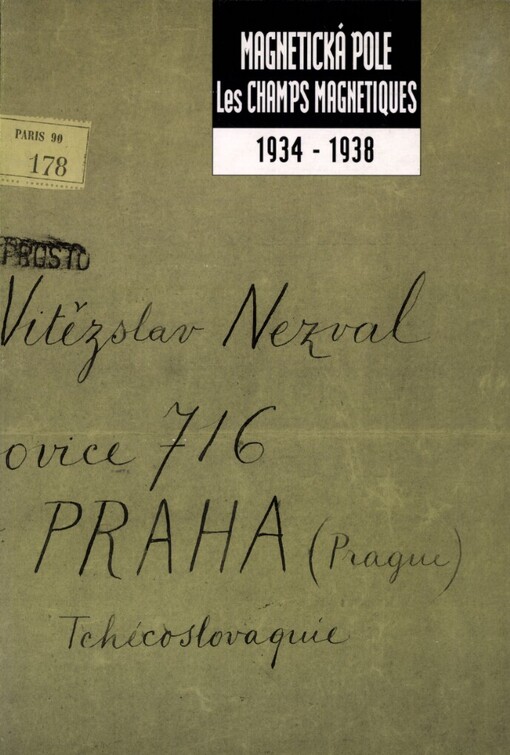 MAGNETICKÁ POLE
Les CHAMPS MAGNETIQUES
1934 - 1938
PARIS 90
178
PROSTO
Vitězslav Nezval
ovice 716
PRAHA (Prague)
Tchécoslovaquie